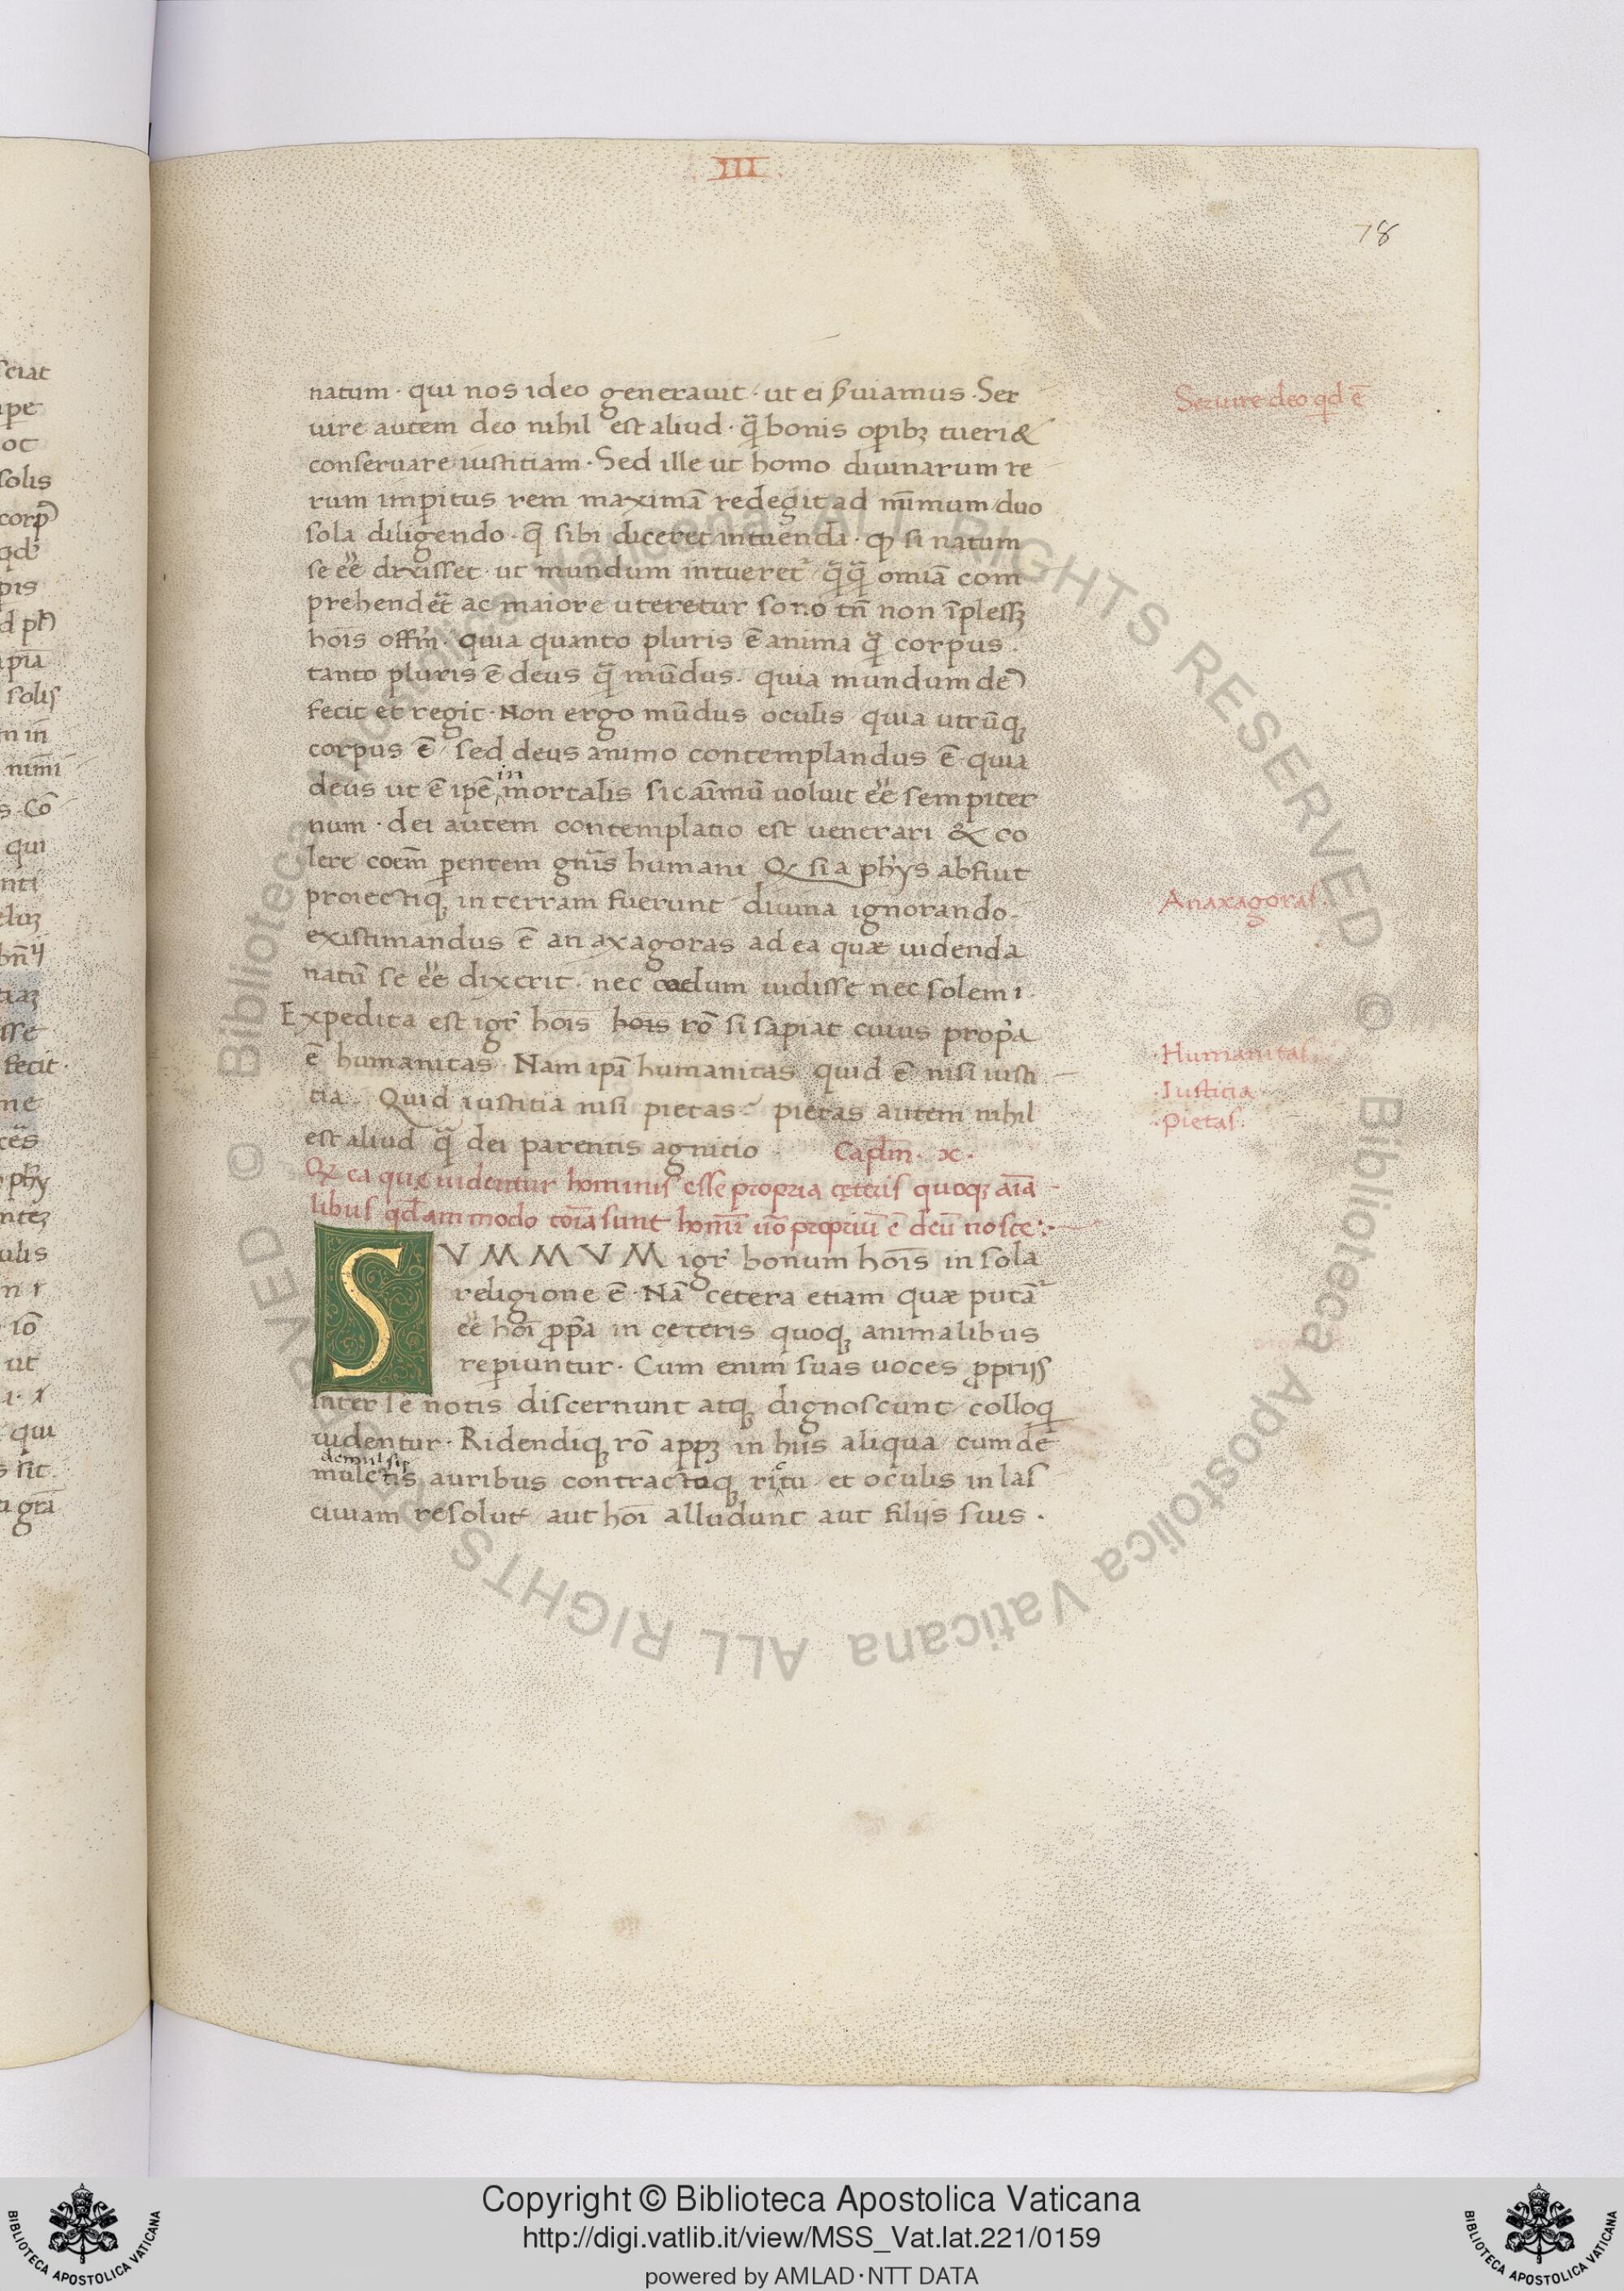 III
78
natum · qui nos ideo generauit · ut ei ꝟuiamus · Ser
uire autem deo nihil est aliud · q̃ bonis opibꝫ tueri &
conseruare iustitiam · Sed ille ut homo diuinarum re
rum imꝑitus rem maximã redegit ad mĩmum / duo
sola diligendo · q̃ sibi diceret intuenda · ꝙ si natum
se eẽ dixisset · ut mundum intueret᷑ q̃q̃ omĩa com
prehendẽt ac maiore uteretur sono tñ non ĩplessꝫ
hoĩs offm̃ · quia quanto pluris ẽ anima q̃ corpus ·
tanto pluris ẽ deus q̃ mũdus · quia mundum de᷒
fecit et regit · Non ergo mũdus oculis quia utrũqꝫ
corpus ẽ / sed deus animo contemplandus ẽ · quia
deus ut ẽ ip̃e in mortalis sic aĩmũ uoluit eẽ sempiter
num · dei autem contemplatio est uenerari & co
lere coẽm ꝑentem gñis humani Q̵ si a ph̃ys abfiut
proiectiqꝫ in terram fuerunt diuina ignorando ·
existimandus ẽ anaxagoras ad ea quæ uidenda
natũ se eẽ dixerit · nec caelum uidisse nec solem ·
Expedita est igr̃ hoĩs hoĩs rõ si sapiat cuius propĩa
ẽ humanitas · Nam ipã humanitas quid ẽ nisi iusti
tia · Quid iustitia nisi pietas · pietas autem nihil
est aliud q̃ dei parentis agnitio · Capl̃m · x ·
Q̵ ea quę uidentur hominis esse propria cęteris quoqꝫ aĩa
libus qd̃am modo cõia sunt homĩ uõ propriũ ẽ deũ nosce :·
SVMMVM igr̃ bonum hoĩs in sola
religione ẽ · Nã cetera etiam quæ putã᷑
eẽ hoĩ ꝓpĩa in ceteris quoqꝫ animalibus
reꝑiuntur · Cum enim suas uoces ꝓprijs
inter se notis discernunt atqꝫ dignoscunt / colloq̃
uidentur · Ridendiqꝫ rõ appꝫ in hiis aliqua / cum de
demulsis
mulctis auribus contractoqꝫ rictu et oculis in las
ciuiam resolut᷑ aut hoĩ alludunt aut filijs suis ·
Seruire deo qd ẽ
Anaxagoras ·
· Humanitas ·
· Iustitia ·
· Pietas ·
Copyright © Biblioteca Apostolica Vaticana
http://digi.vatlib.it/view/MSS_Vat.lat.221/0159
powered by AMLAD · NTT DATA
BIBLIOTECA APOSTOLICA VATICANA
BIBLIOTECA APOSTOLICA VATICANA
© Biblioteca Apostolica Vaticana ALL RIGHTS RESERVED © Biblioteca Apostolica Vaticana ALL RIGHTS RESERVED